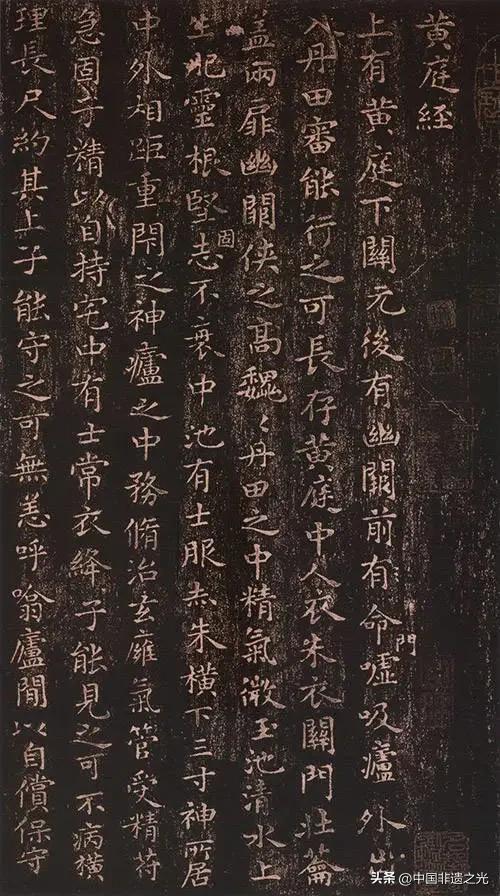 黄庭経
上有黄庭下關元後有幽闕前有命門噓吸廬外出
入丹田審能行之可長存黄庭中人衣朱衣關門壯籥
蓋兩扉幽闕俠之髙巍〻丹田之中精氣微玉池清水上
生肥靈根堅固志不衰中池有士服赤朱橫下三寸神所居
中外相距重閇之神廬之中務脩治玄廱氣管受精符
急固子精以自持宅中有士常衣絳子能見之可不病橫
理長尺約其上子能守之可無恙呼噏廬間以自償保守
头条 @中国非遗之光